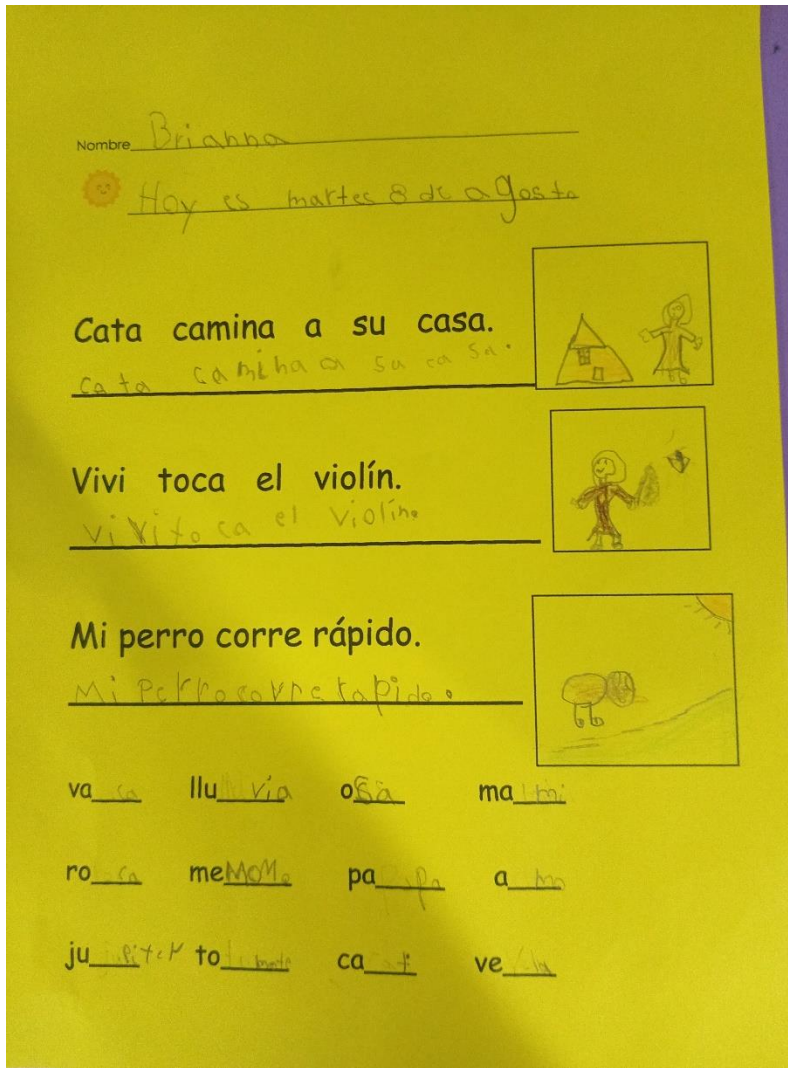 Nombre Brianna
Hoy es martes 8 de agosto
Cata camina a su casa.
Cata camina a su ca sa.
Vivi toca el violín.
Vivi toca el violín.
Mi perro corre rápido.
Mi perro corre rapido.
va ca lluvia osa mami
ro ca me MoMe papa a mo
jupiter to cat vela